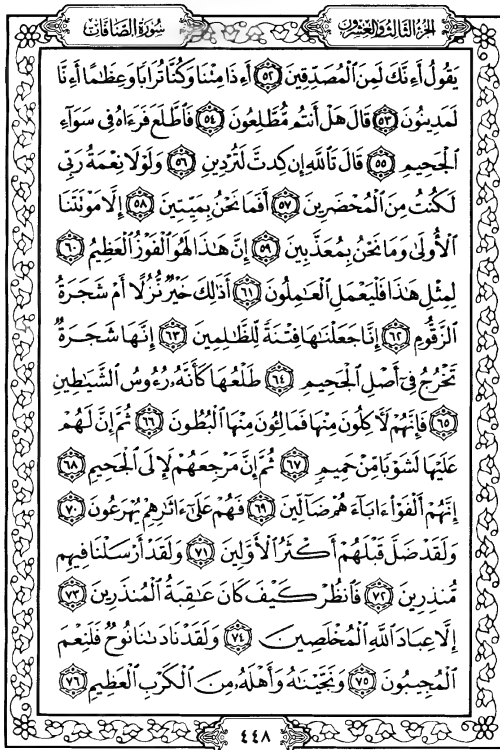 سُورَةُ الصَّافَّاتِ
الجُزْءُ الثَّالِثُ وَالعِشْرُونَ
يَقُولُ أَءِنَّكَ لَمِنَ الْمُصَدِّقِينَ ٥٢ أَءِذَا مِتْنَا وَكُنَّا تُرَابًا وَعِظَٰمًا أَءِنَّا
لَمَدِينُونَ ٥٣ قَالَ هَلْ أَنتُم مُّطَّلِعُونَ ٥٤ فَاطَّلَعَ فَرَءَاهُ فِى سَوَآءِ
الْجَحِيمِ ٥٥ قَالَ تَاللَّهِ إِن كِدتَّ لَتُرْدِينِ ٥٦ وَلَوْلَا نِعْمَةُ رَبِّى
لَكُنتُ مِنَ الْمُحْضَرِينَ ٥٧ أَفَمَا نَحْنُ بِمَيِّتِينَ ٥٨ إِلَّا مَوْتَتَنَا
الْأُولَىٰ وَمَا نَحْنُ بِمُعَذَّبِينَ ٥٩ إِنَّ هَٰذَا لَهُوَ الْفَوْزُ الْعَظِيمُ ٦٠
لِمِثْلِ هَٰذَا فَلْيَعْمَلِ الْعَٰمِلُونَ ٦١ أَذَٰلِكَ خَيْرٌ نُّزُلًا أَمْ شَجَرَةُ
الزَّقُّومِ ٦٢ إِنَّا جَعَلْنَٰهَا فِتْنَةً لِّلظَّٰلِمِينَ ٦٣ إِنَّهَا شَجَرَةٌ
تَخْرُجُ فِىٓ أَصْلِ الْجَحِيمِ ٦٤ طَلْعُهَا كَأَنَّهُۥ رُءُوسُ الشَّيَٰطِينِ
٦٥ فَإِنَّهُمْ لَءَاكِلُونَ مِنْهَا فَمَالِـُٔونَ مِنْهَا الْبُطُونَ ٦٦ ثُمَّ إِنَّ لَهُمْ
عَلَيْهَا لَشَوْبًا مِّنْ حَمِيمٍ ٦٧ ثُمَّ إِنَّ مَرْجِعَهُمْ لَإِلَى الْجَحِيمِ ٦٨
إِنَّهُمْ أَلْفَوْا۟ ءَابَآءَهُمْ ضَآلِّينَ ٦٩ فَهُمْ عَلَىٰٓ ءَاثَٰرِهِمْ يُهْرَعُونَ ٧٠
وَلَقَدْ ضَلَّ قَبْلَهُمْ أَكْثَرُ الْأَوَّلِينَ ٧١ وَلَقَدْ أَرْسَلْنَا فِيهِم
مُّنذِرِينَ ٧٢ فَانظُرْ كَيْفَ كَانَ عَٰقِبَةُ الْمُنذَرِينَ ٧٣
إِلَّا عِبَادَ اللَّهِ الْمُخْلَصِينَ ٧٤ وَلَقَدْ نَادَىٰنَا نُوحٌ فَلَنِعْمَ
الْمُجِيبُونَ ٧٥ وَنَجَّيْنَٰهُ وَأَهْلَهُۥ مِنَ الْكَرْبِ الْعَظِيمِ ٧٦
٤٤٨